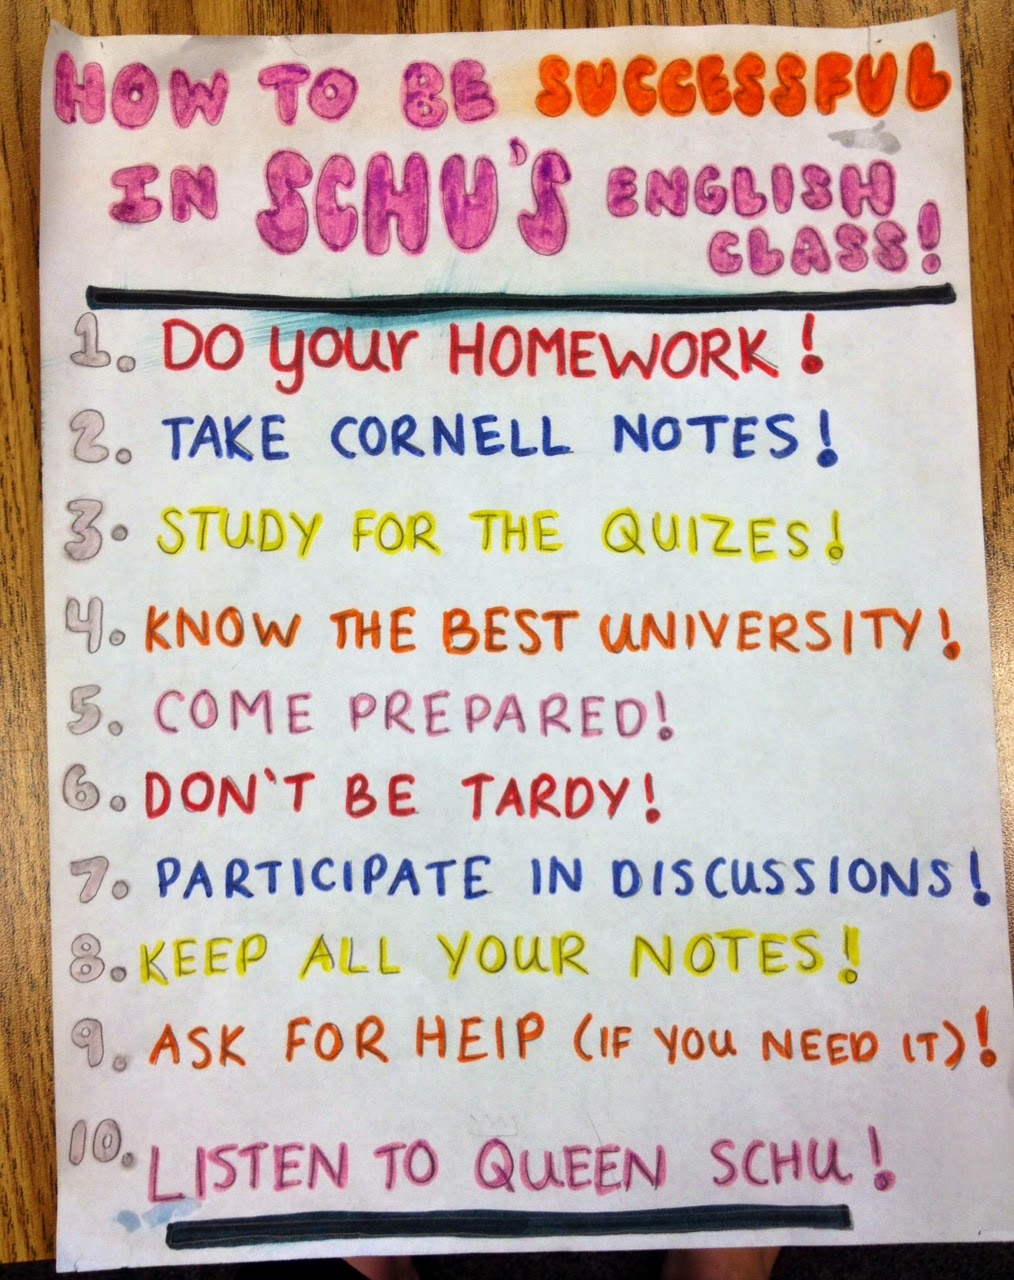 HOW TO BE SUCCESSFUL
IN SCHU'S ENGLISH
CLASS!
1. Do your HOMEWORK!
2. TAKE CORNELL NOTES!
3. STUDY FOR THE QUIZES!
4. KNOW THE BEST UNIVERSITY!
5. COME PREPARED!
6. DON'T BE TARDY!
7. PARTICIPATE IN DISCUSSIONS!
8. KEEP ALL YOUR NOTES!
9. ASK FOR HElP (IF YOU NEED IT)!
10. LISTEN TO QUEEN SCHU!